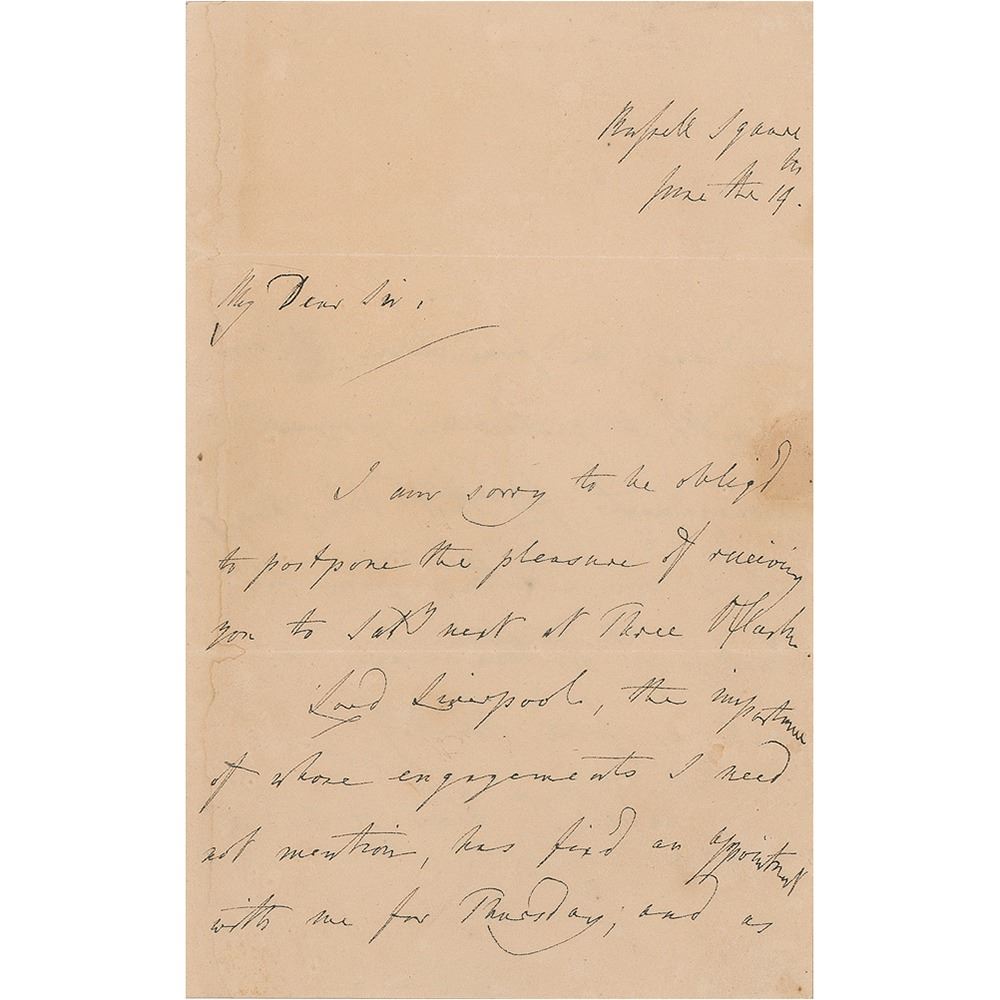 Russell Square
June the 19th.
My Dear Sir,
I am sorry to be oblig'd
to postpone the pleasure of receiving
you to Saty next at Three OClock.
Lord Liverpool, the importance
of whose engagements I need
not mention, has fix'd an appointment
with me for Thursday; and as